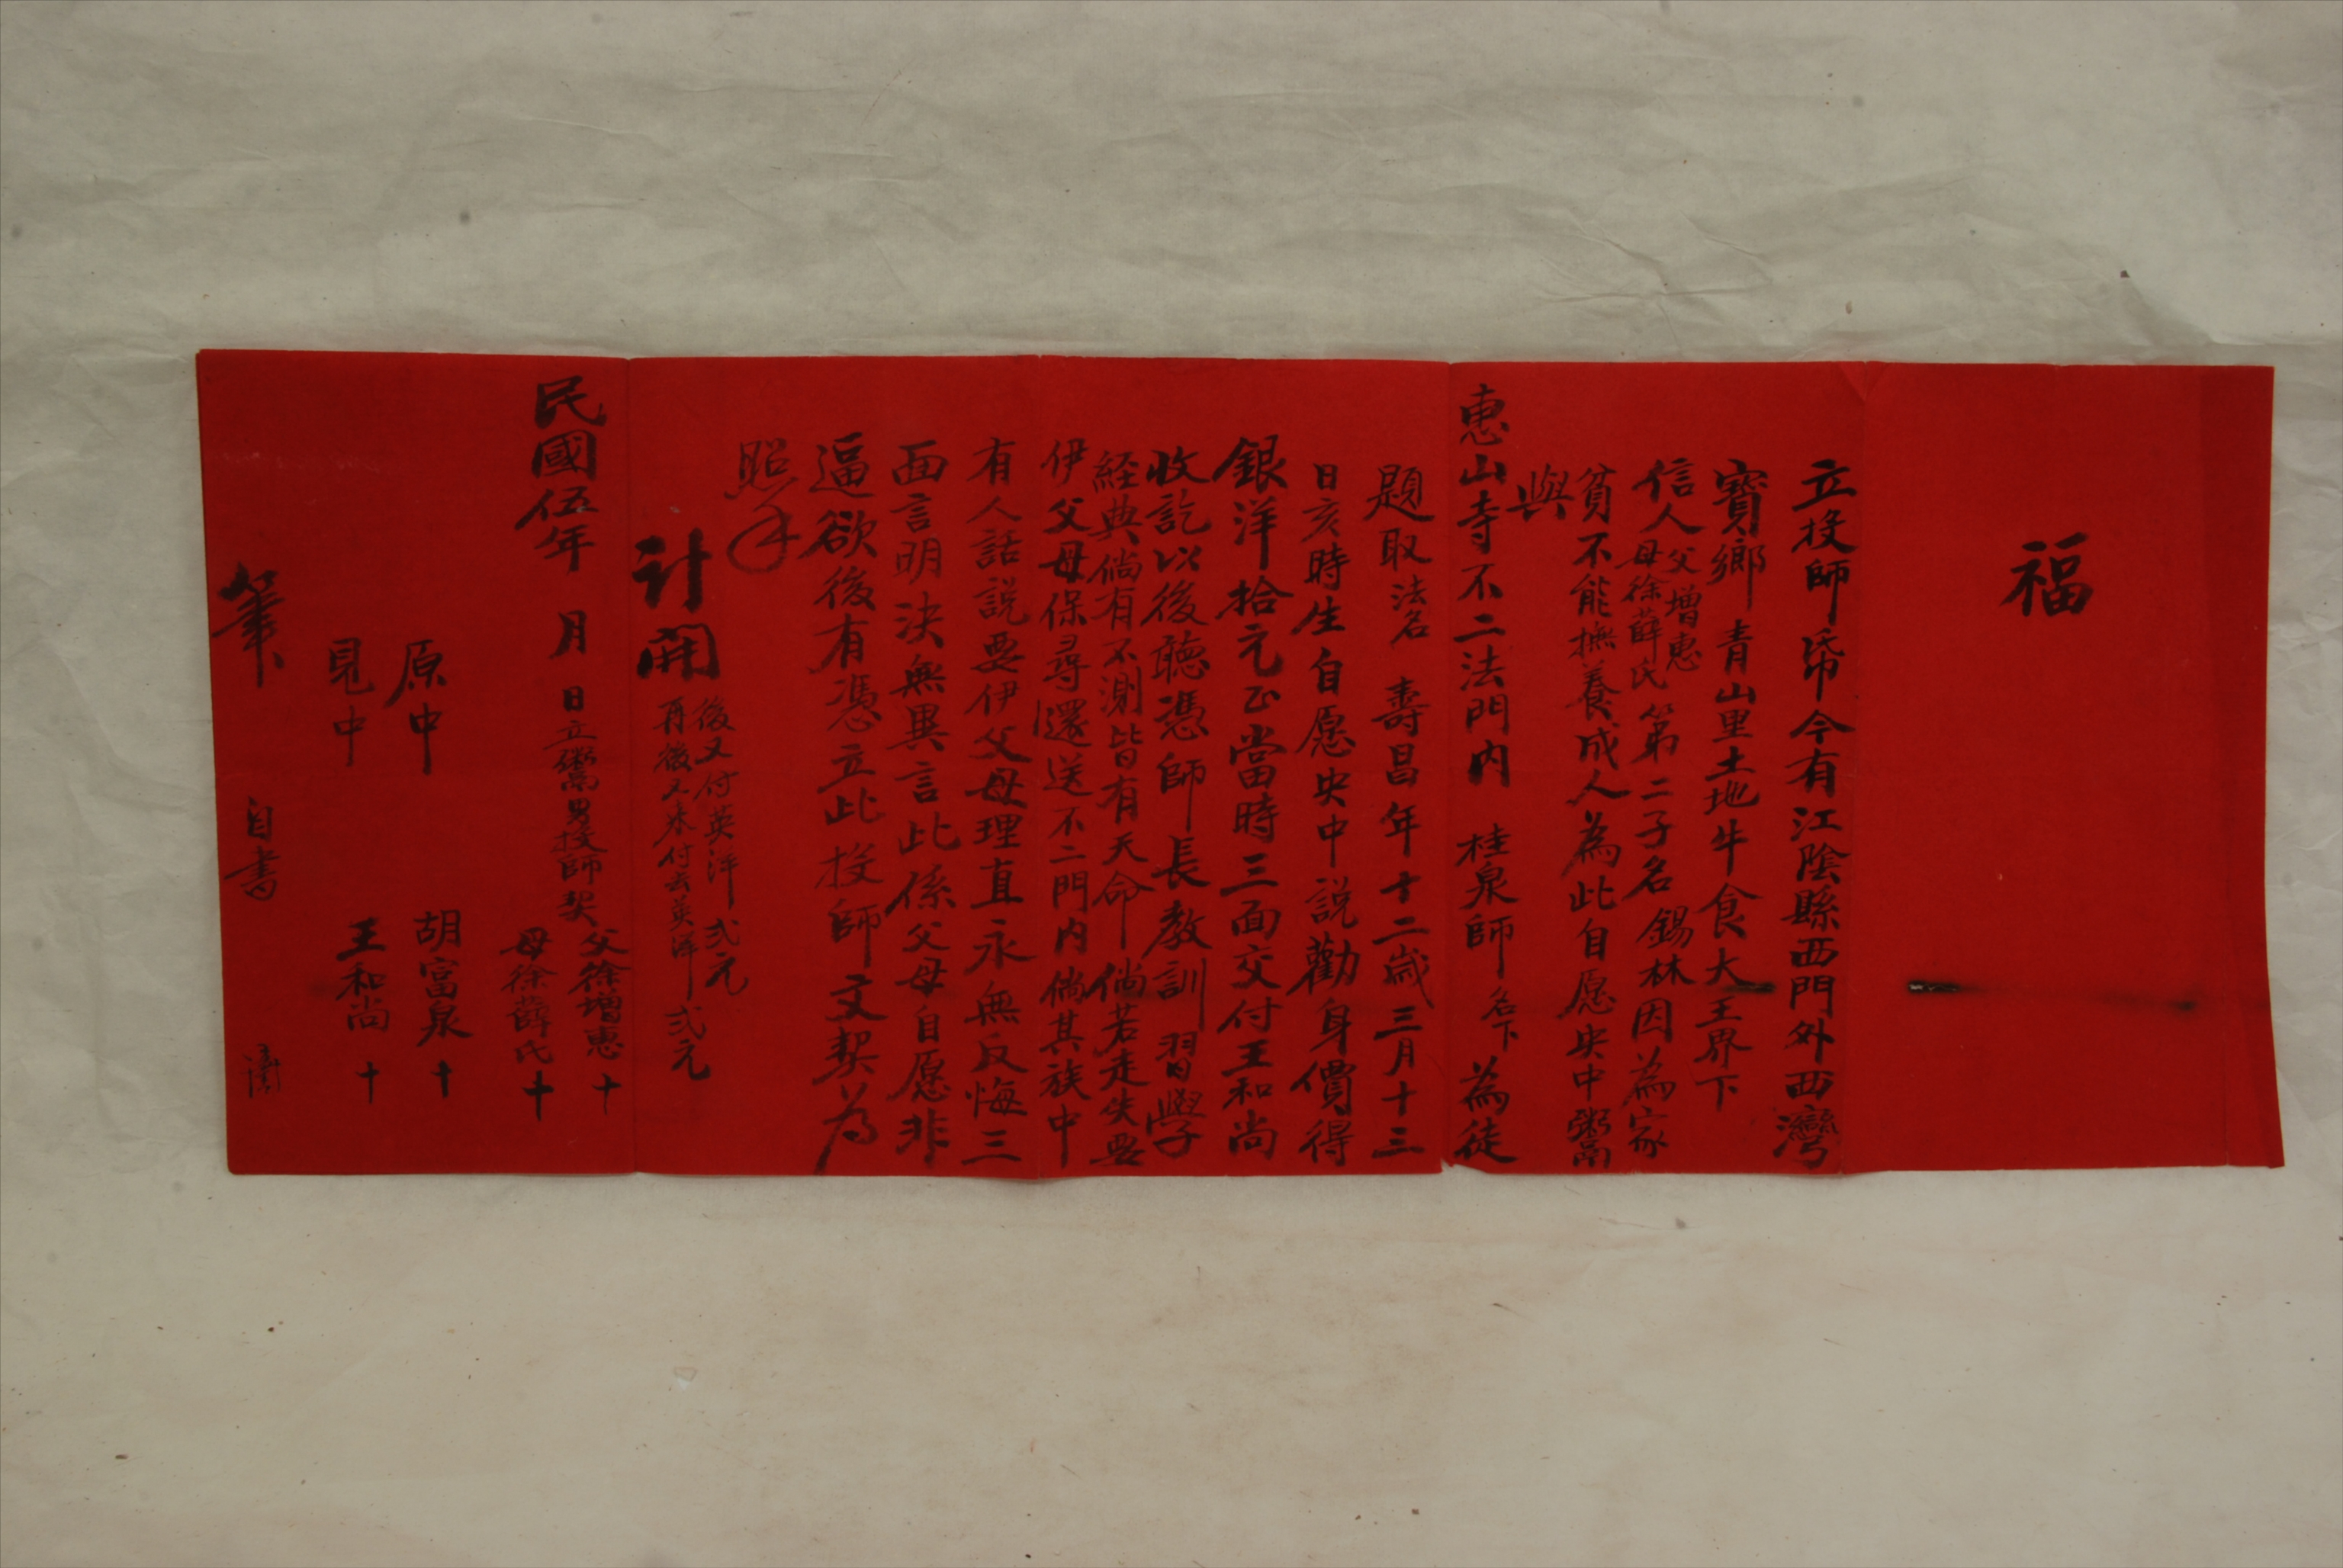 福
立投師帋今有江陰縣西門外西灣
寶鄉 青山里土地牛食大王界下
信人父增惠母徐薛氏第二子名 錫林因為家
貧不能撫養成人為此自愿央中鬻
與
惠山寺不二法門內 桂泉師 名下 為徒
題取 法名 壽昌年十二歲三月十三
日亥時生自愿央中說勸身價得
銀洋拾元正當時三面交付王和尚
收訖以後聽憑師長教訓習學
経典倘有不測皆有天命倘若走失要
伊父母保尋還送不二門內倘其族中
有人話說要伊父母理直永無反悔三
面言明決無異言此係父母自愿非
逼欲後有憑立此投師文契為
照
計開
後又付英洋弍元
再後又來付去英洋弍元
民國伍年 月 日立鬻男投師契 父徐增惠 十
母徐薛氏 十
原中 胡富泉 十
見中 王和尚 十
筆 自書